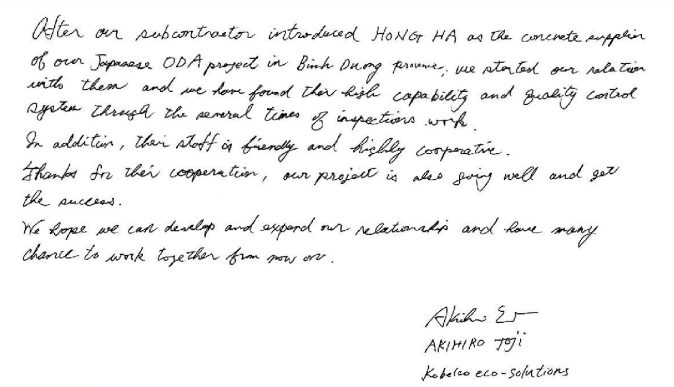 After our subcontractor introduced HONG HA as the concrete supplier
of our Japanese ODA project in Binh Duong provine, we started our relation
with them and we have found their high capability and quality control
system through the several times of inspections work.
In addition, their staff is friendly and highly cooperative.
Thanks for their cooperation, our project is also going well and get
the success.
We hope we can develop and expend our relationship and have many
chance to work together from now on.
Akihiro
AKIHIRO TOJI
Kobelco eco-solutions